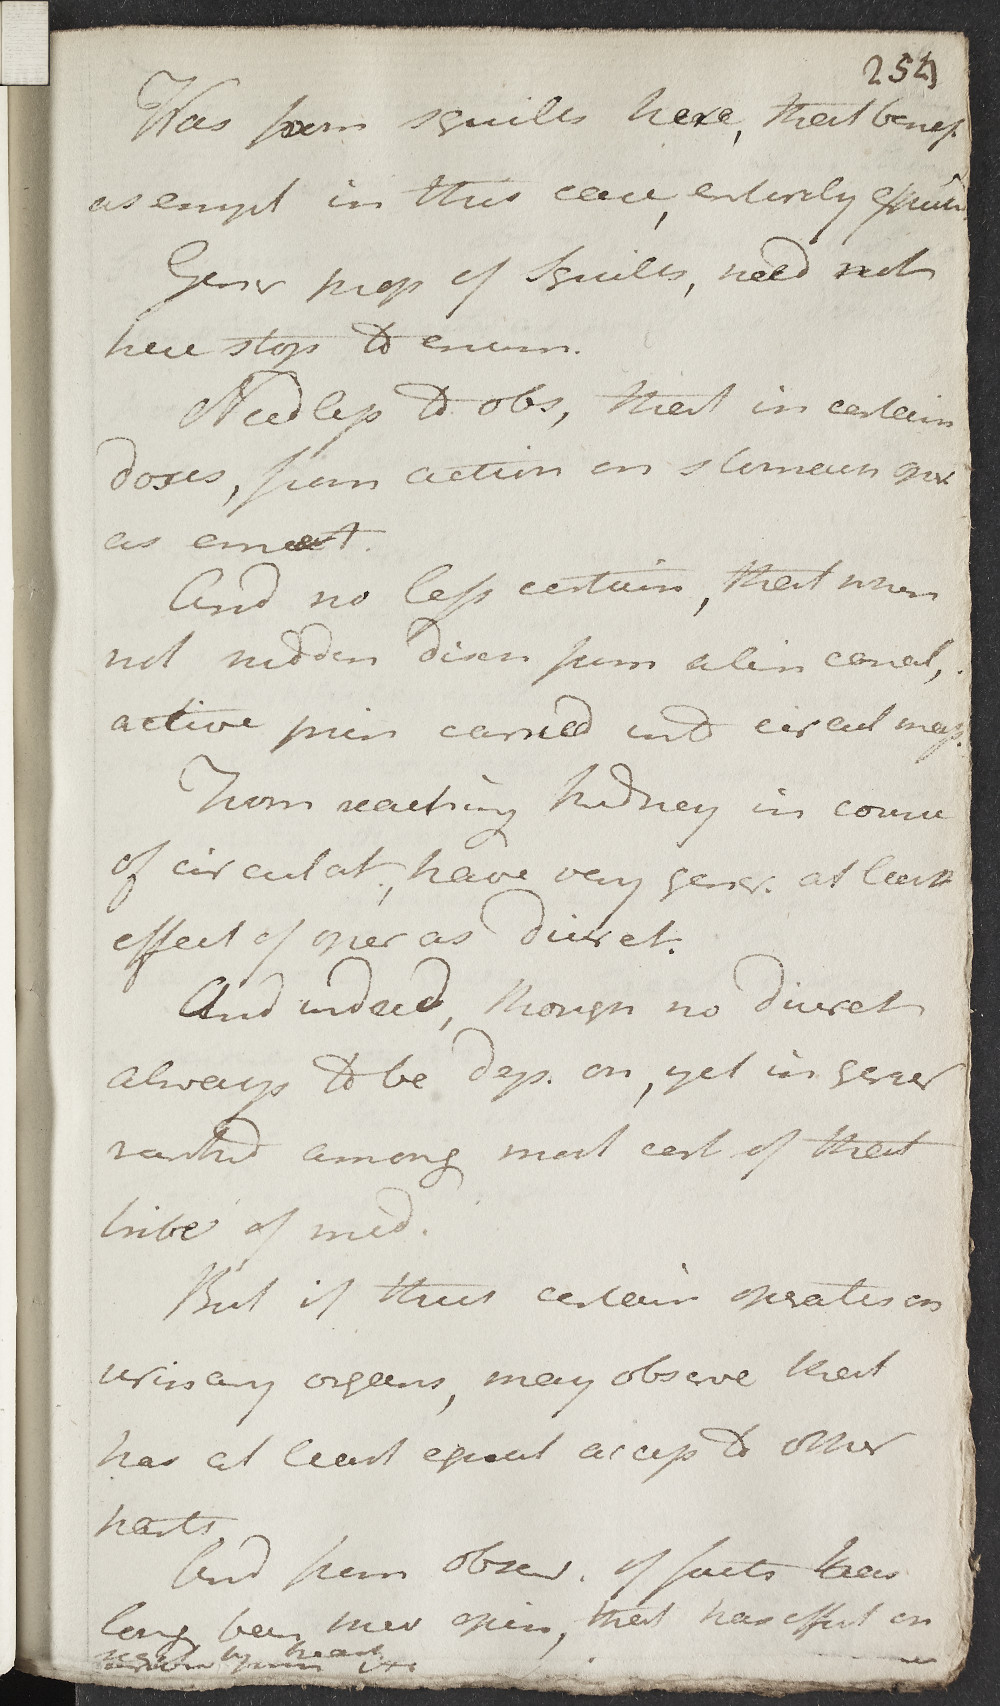 254
Was from squills here, that benef.
as empl in this case, entirely
Gener prop of Squills, need not
here stop to enum.
Needless to obs, that in certain
doses, from action on stomach oper
as emet.
And no less certain, that when
not sudden disch from alim canal,
active prin carried into circul mass.
From reaching kidney in course
of circulat., have very gener. at least
effect of oper as diuret.
And indeed, though no diuret
always to be dep. on, yet in gener
ranked among most cert of that
tribe of med.
But if thus certain operates on
urinary organs, may observe that
has at least equal access to other
parts
And from obser. of facts has
long been opin, that has effect on